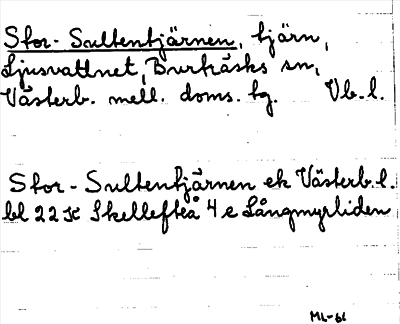 Stor-Sultentjärnen, tjärn,
Ljusvattnet, Burträsks sn,
Västerb. mell. doms. tg. Vb. l.
Stor-Sultentjärnen ek Västerb. l.
bl 22 K Skellefteå 4 e Långmyrliden
ML-61